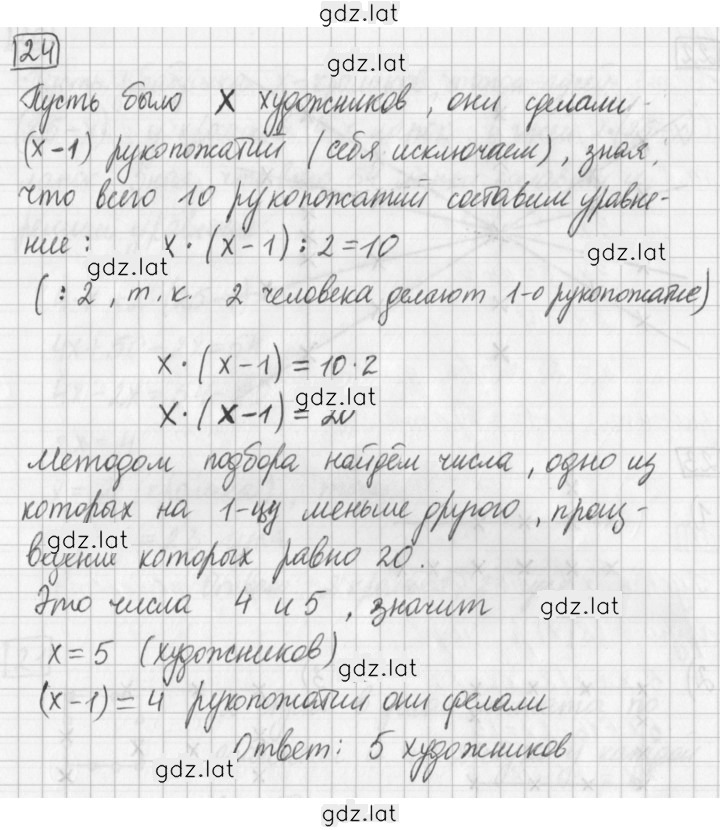 gdz.lat
24
gdz.lat
Пусть было х художников, они сделали
(х-1) рукопожатий (себя исключаем), зная,
что всего 10 рукопожатий составим уравне-
ние: х·(х-1):2=10
gdz.lat gdz.lat
(:2, т.к. 2 человека делают 1-о рукопожатие)
х·(х-1)=10·2
gdz.lat
х·(х-1)=20
Методом подбора найдём числа, одно из
которых на 1-цу меньше другого, произ-
gdz.lat
ведение которых равно 20.
Это числа 4 и 5, значит
gdz.lat
х=5 (художников)
gdz.lat
(х-1)=4 рукопожатий они сделали
Ответ: 5 художников
gdz.lat
gdz.lat